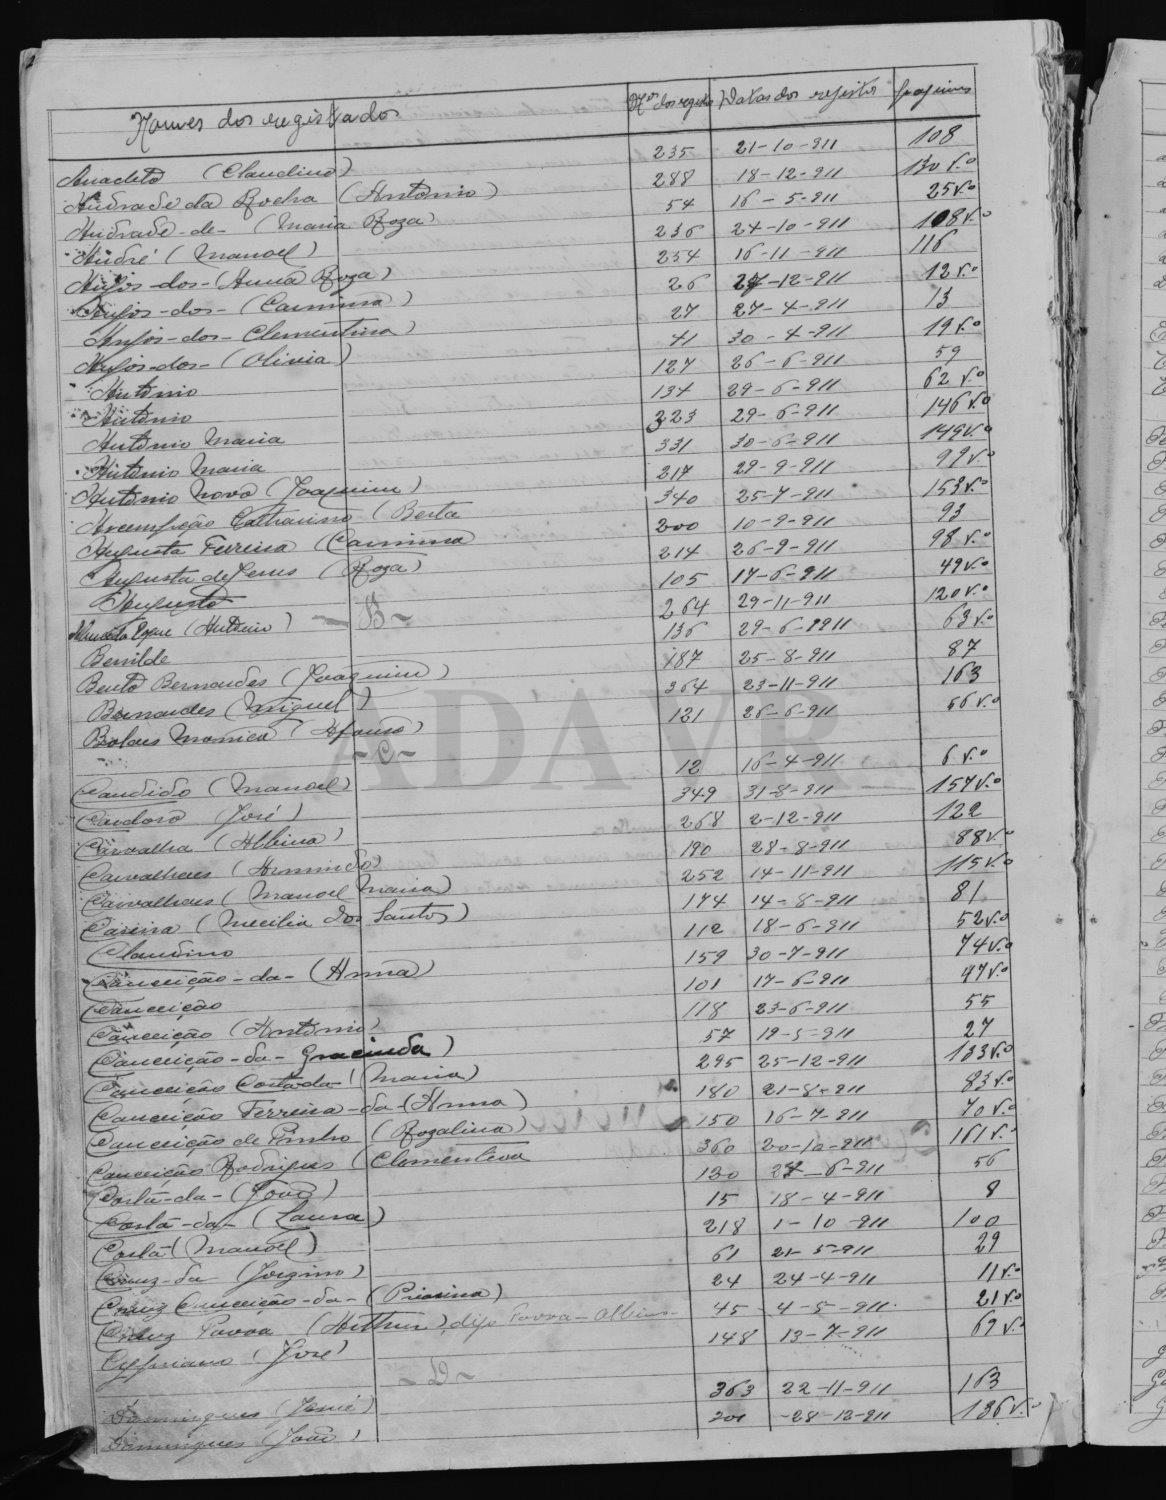 Nomes dos registados Nos dos registos Datas dos registos Paginas
Anacleto (Claudino) 235 21-10-911 108
Andrade da Rocha (Antonio) 288 18-12-911 130 v.o
Andrade-de- (Maria Roza) 54 16-5-911 25 v.o
André (Manoel) 236 24-10-911 108 v.o
Anjos-dos-(Anna Roza) 254 16-11-911 116
Anjos-dos-(Carminda) 26 27-12-911 12 v.o
Anjos-dos-Clementina) 27 27-4-911 13
Anjos-dos-(Olivia) 41 30-4-911 19 v.o
Antonio 127 26-6-911 59
Antonio 134 29-6-911 62 v.o
Antonio Maria 323 29-6-911 146 v.o
Antonio Maria 331 30-6-911 149 v.o
Antonio Novo (Joaquim) 217 29-9-911 99 v.o
Assumpção Catharino (Berta 340 25-7-911 153 v.o
Augusta Ferreira (Carminda 200 10-9-911 93
Augusta de Jesus (Roza) 214 26-9-911 98 v.o
Augusto 105 17-6-911 49 v.o
(Antonio) 264 29-11-911 120 v.o
-B-
Benilde 136 29-6-1911 63 v.o
Bento Bernardes (Joaquim) 187 25-8-911 87
Bernardes (Miguel) 364 23-11-911 163
Bolaes Monica (Afonso) 121 26-6-911 56 v.o
-C-
Candido (Manoel) 12 16-4-911 6 v.o
Cardoso (José) 349 31-8-911 157 v.o
Carvalha (Albina) 268 2-12-911 122
Carvalhaes (Herminda) 190 28-8-911 88 v.o
Carvalhaes (Manoel Maria) 252 14-11-911 115 v.o
Caseira (Mecilia dos Santos) 174 14-8-911 81
Claudino 112 18-6-911 52 v.o
Conceição-da-(Anna) 159 30-7-911 74 v.o
Conceição 101 17-6-911 47 v.o
Conceição (Antonio) 118 23-6-911 55
Conceição-da-Gracinda) 57 19-5-911 27
Conceição Costa da (Maria) 295 25-12-911 133 v.o
Conceição Ferreira-da-(Anna) 180 21-8-911 83 v.o
Conceição de Pinho (Rozalina) 150 16-7-911 70 v.o
Conceição Rodrigues (Clementina 360 20-10-911 161 v.o
Costa-da-(João) 120 24-6-911 56
Costa-da-(Laura) 15 18-4-911 8
Costa (Manoel) 218 1-10-911 100
Cruz-da (Jorgino) 61 21-5-911 29
Cruz Conceição-da-( 24 24-4-911 11 v.o
Cruz Povoa (Arthur), diz Povoa-Albino- 45 4-5-911 21 v.o
Cypriano (José) 148 13-7-911 69 v.o
-D-
Domingues (José) 363 22-11-911 163
Domingues (João) 301 -28-12-911 136 v.o
ADAVR